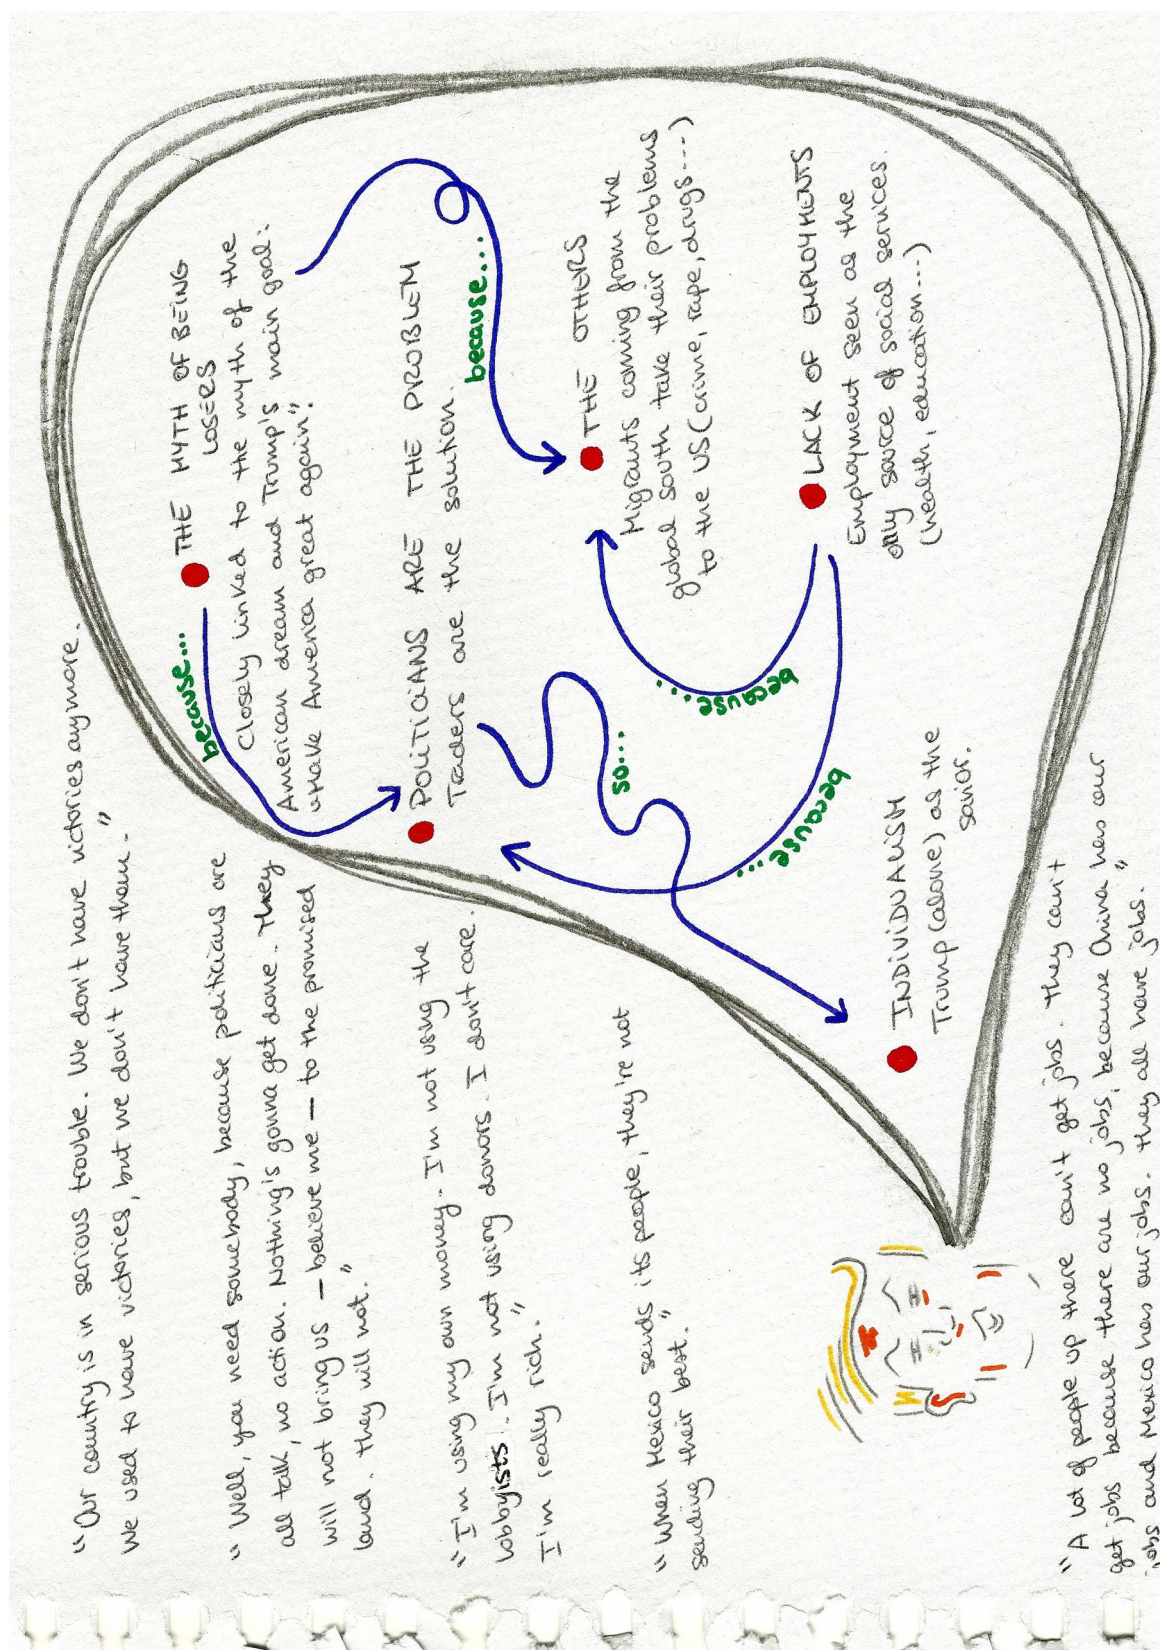 "Our country is in serious trouble. We don't have victories anymore.
We used to have victories, but we don't have them."
"Well, you need somebody, because politicians are
all talk, no action. Nothing's gonna get done. They
will not bring us – believe me – to the promised
land. They will not."
"I'm using my own money. I'm not using the
lobbyists. I'm not using donors. I don't care.
I'm really rich."
"When Mexico sends its people, they're not
sending their best."
"A lot of people up there can't get jobs. They can't
get jobs because there are no jobs, because China has our
jobs and Mexico has our jobs. They all have jobs."
THE MYTH OF BEING
LOSERS
Closely linked to the myth of the
American dream and Trump's main goal:
"Make America great again".
because...
because...
POLITICIANS ARE THE PROBLEM
Traders are the solution.
THE OTHERS
Migrants coming from the
global south take their problems
to the US (crime, rape, drugs...)
so...
because...
because...
LACK OF EMPLOYMENTS
Employment seen as the
only source of social services
(health, education...)
INDIVIDUALISM
Trump (alone) as the
savior.